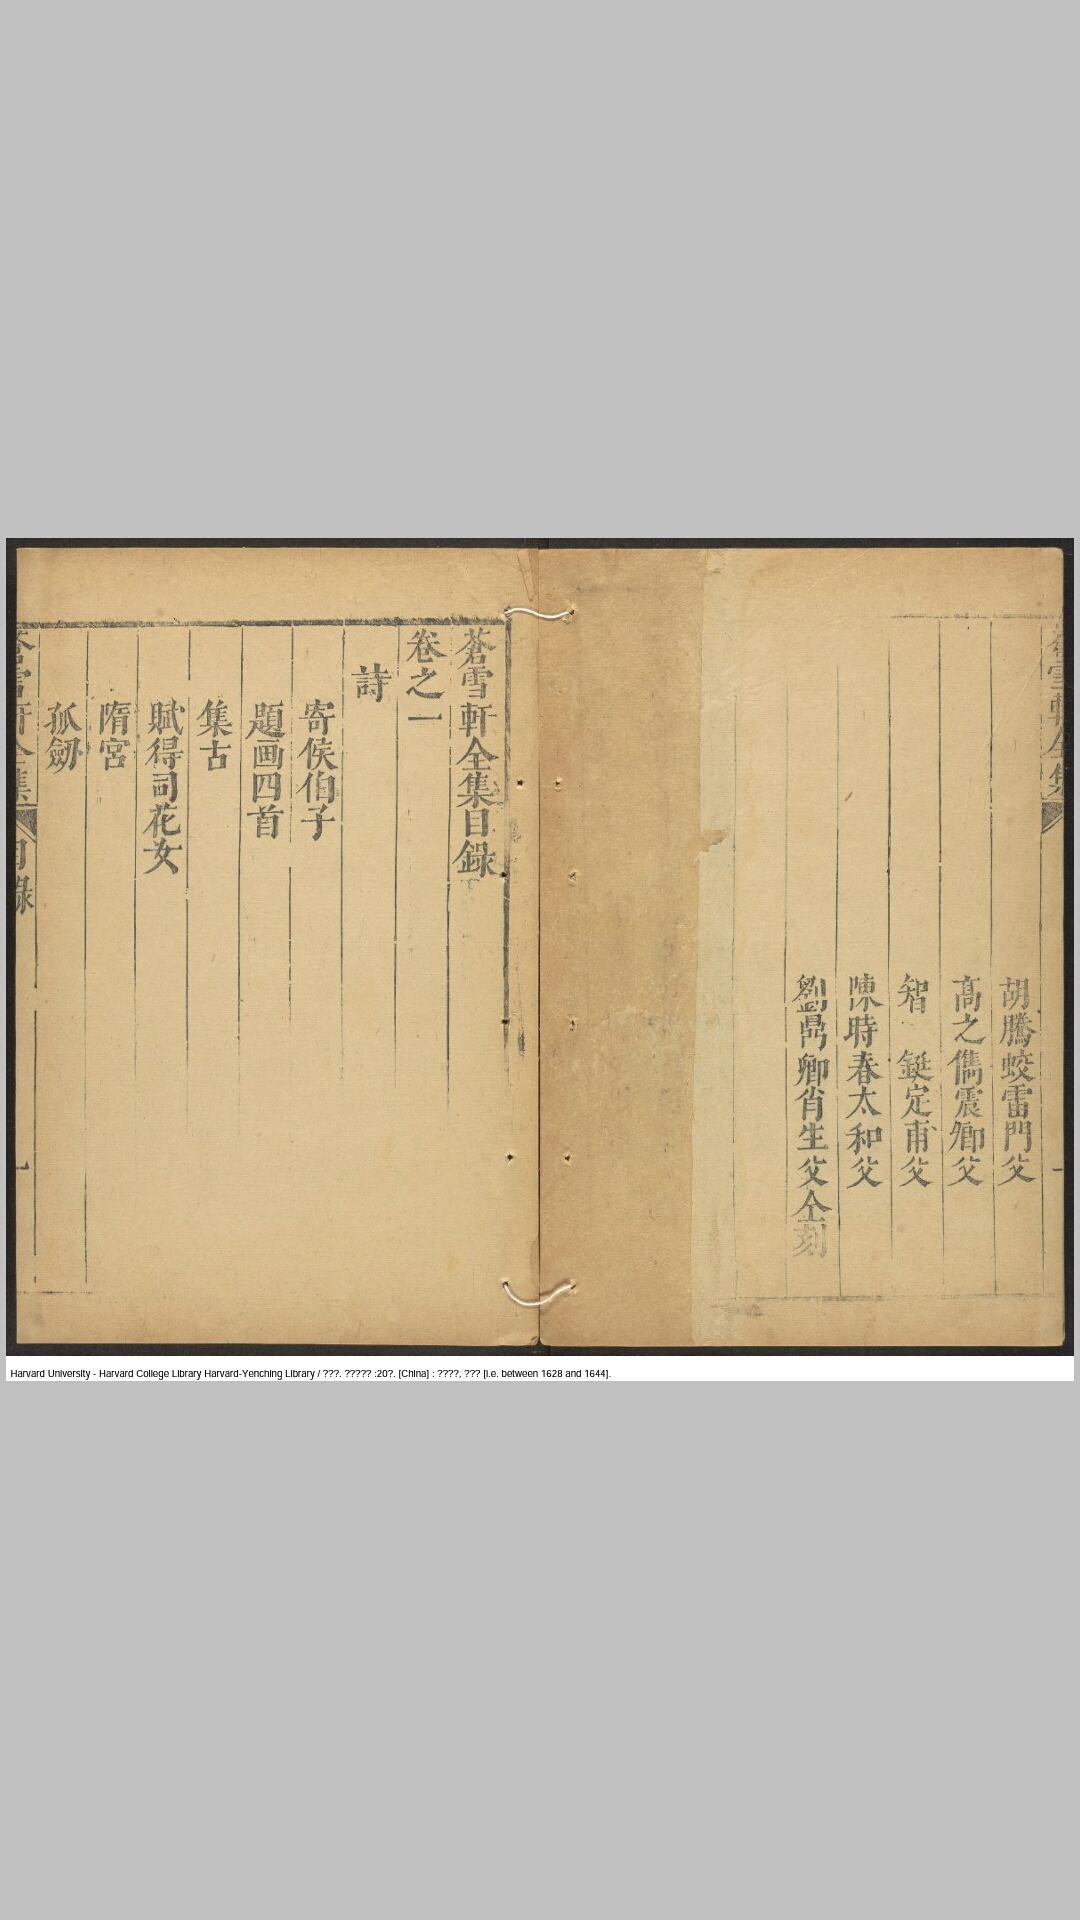 蒼雪軒全集
一
胡騰蛟雷門父
高之儁震卿父
智　鋌定甫父
陳時春太和父
劉鼎卿肖生父仝刻
蒼雪軒全集目錄
卷之一
詩
寄侯伯子
題画四首
集古
賦得司花女
隋宮
孤劒
蒼雪軒全集
目錄
一
Harvard University - Harvard College Library Harvard-Yenching Library / ???. ????? :20?. [China] : ????, ??? [i.e. between 1628 and 1644].